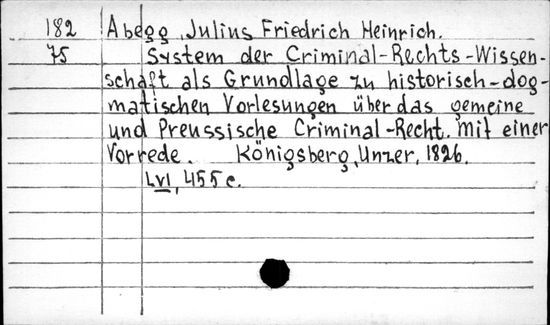 182 Abegg, Julius Friedrich Heinrich.
75 System der Criminal-Rechts-Wissen-
schaft als Grundlage zu historisch-dog-
matischen Vorlesungen über das gemeine
und Preussische Criminal-Recht. Mit einer
Vorrede. Königsberg, Unzer, 1826.
LVI, 455 c.